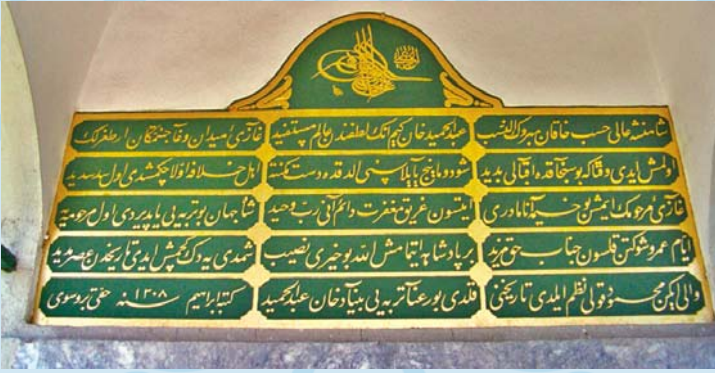 شاهنشه عالی حسب خاقان مبروك النسب عبدالحمید خان كیم انك لطفندن عالم مستفید غازیء میدان وغا جنتمكان ارطغرلك
اولمش ایدی وقتا كه بوسجاقده اقبالی بدید شو دومانج یایلاسنی الدقده دست اهل خلافه اولا چكمشدی اول سد سدید
غازی مرحومك ایمش بو خیمه آنا مادری ایتسون غریق مغفرت دائم آنی رب وحید شاه جهان بو تربه یی یاپدیردی اول مرحومه یه
ایام عمر و شوكتن قلسون جناب حق مزید بر پادشاهه ایتمامش الله بو خیری نصیب شمدی یه دك كچمش ایدی تاریخدن عصر مدید
والی ایكن محمود قولی نظم ایلدی تاریخنی قلدی بو رعنا تربه یی بنیاد خان عبدالحمید كتبه ابراهیم حقی بروسوی سنه ١٣٠٨